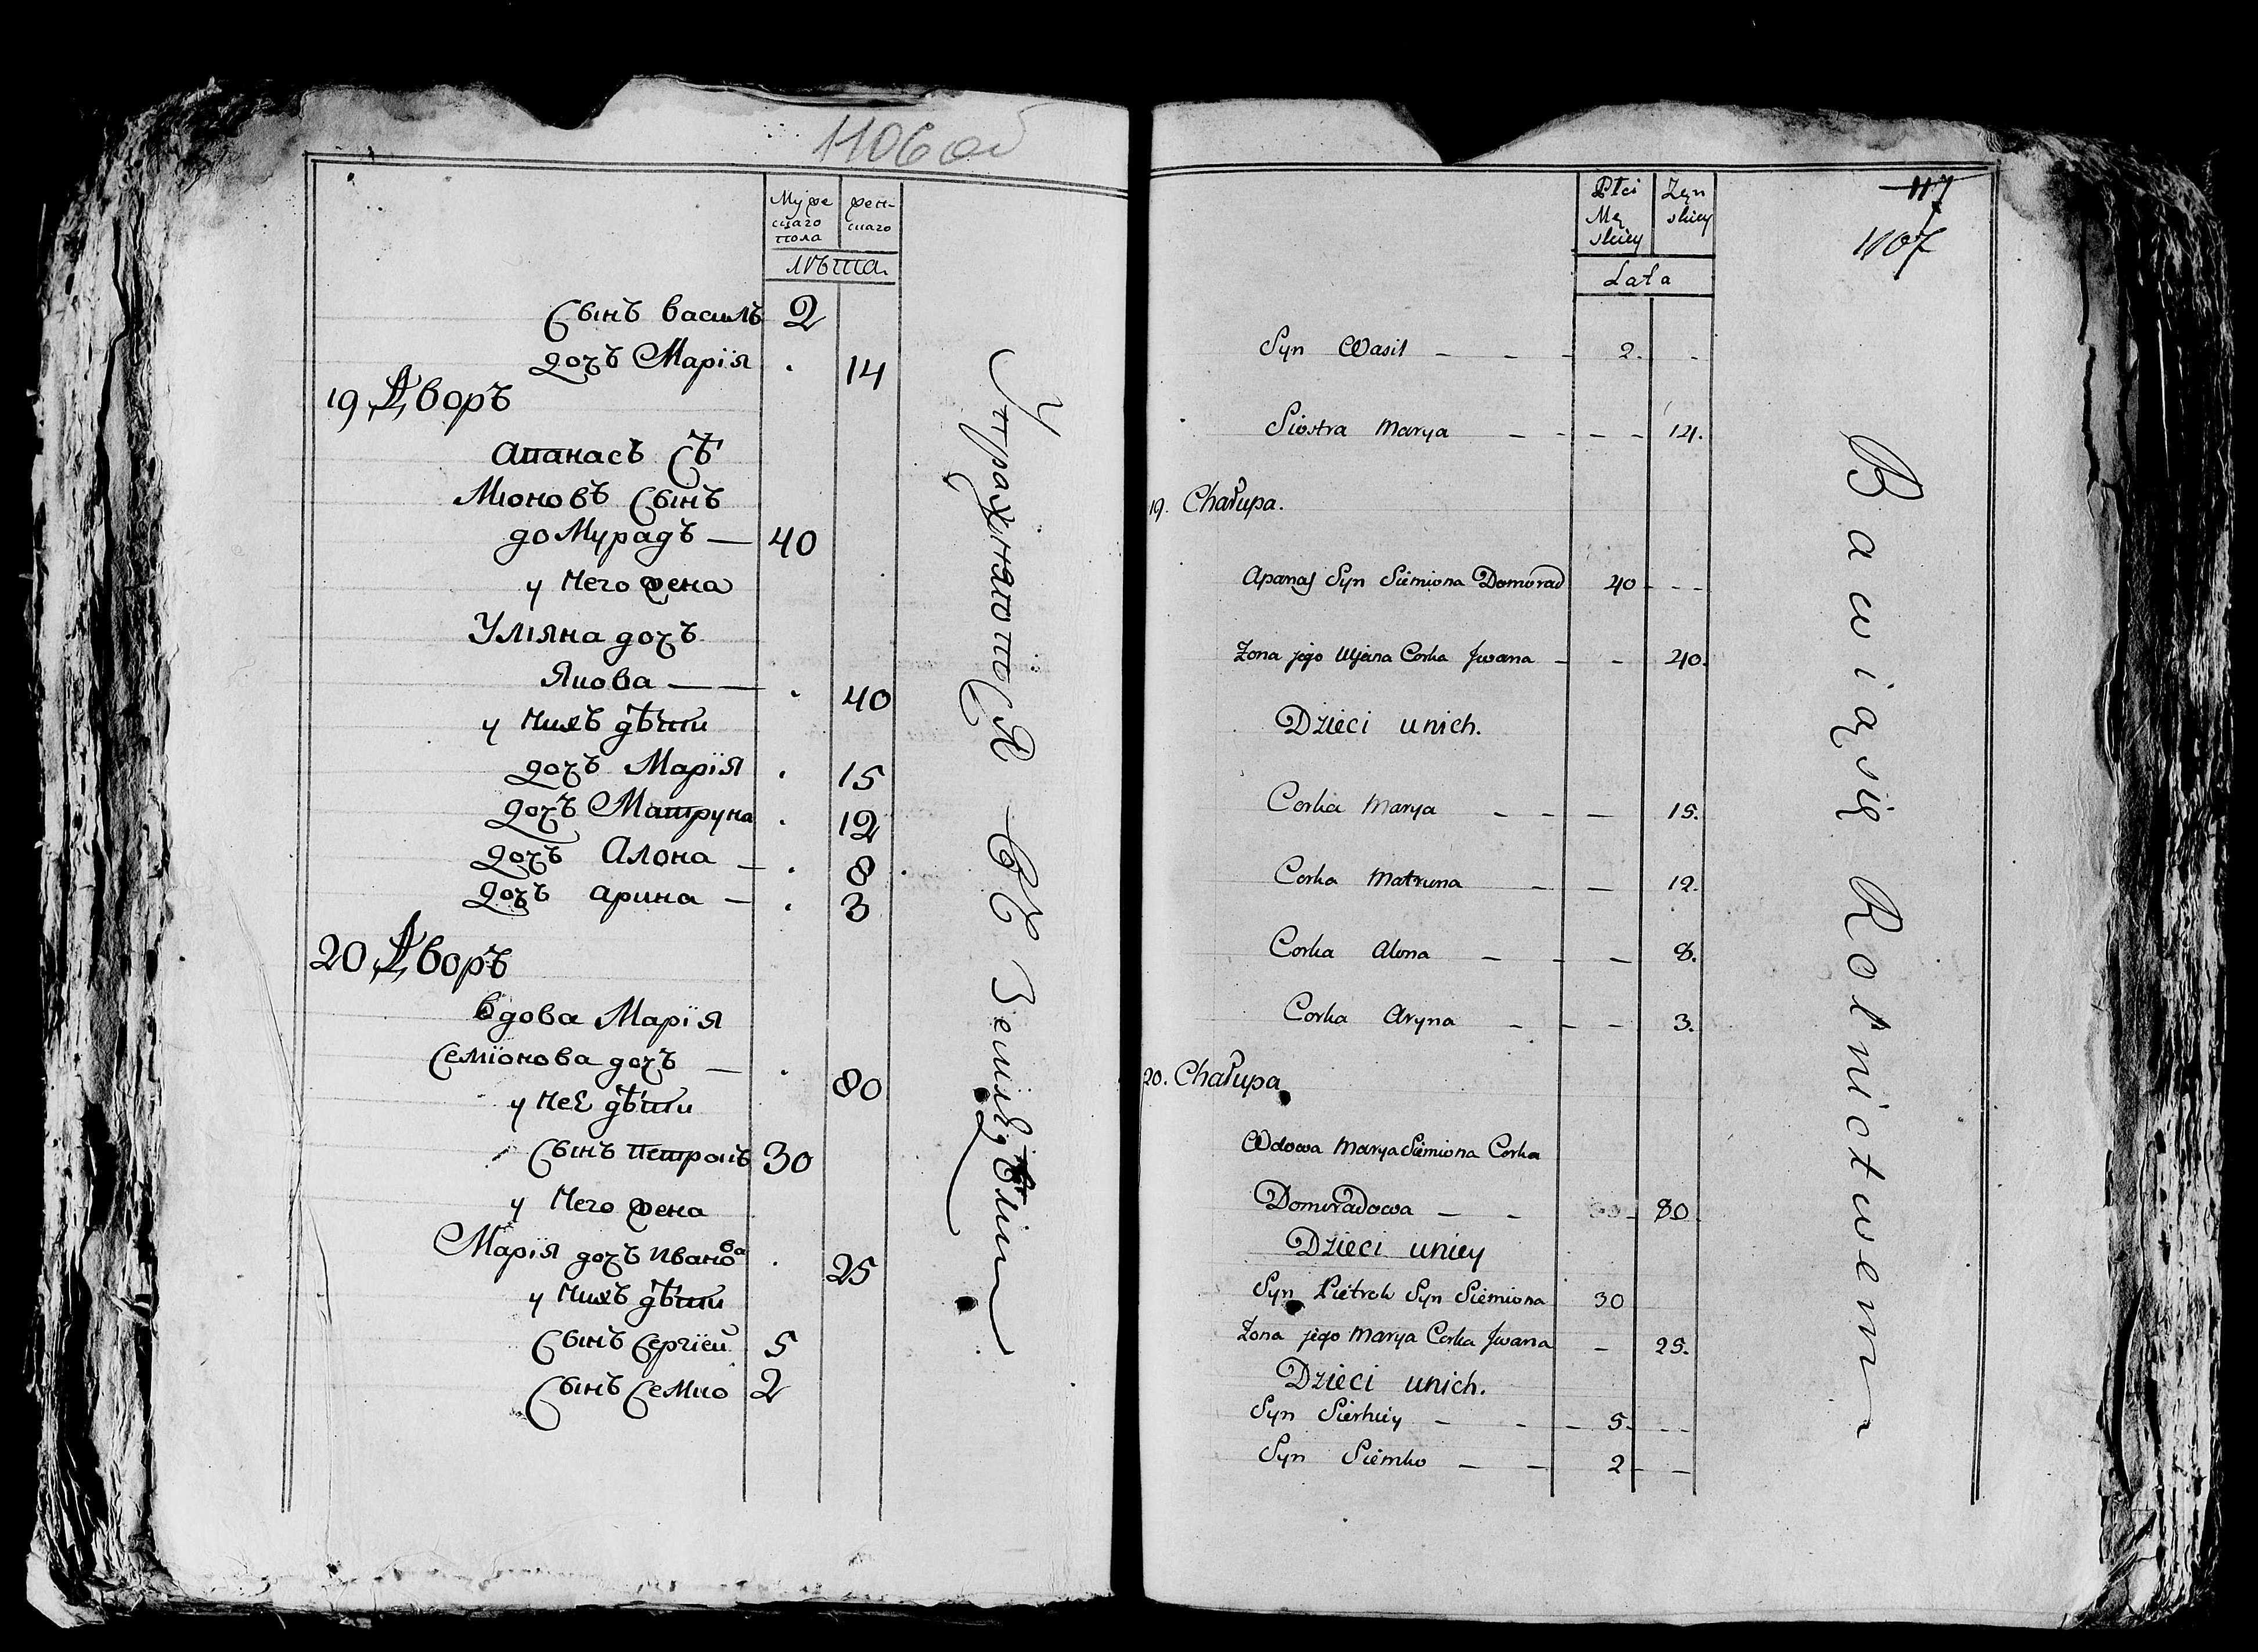 1106 об
Муже
скаго
пола
жен-
скаго
лѣта.
Сынъ василъ 2
дочъ Марїя . 14
19 Дворъ
апанасъ Сѣ
Мюновъ Сынъ
до Мурадъ — 40
у Него жена
Улıяна дочъ
Якова — — . 40
у Нихъ дѣти
дочъ Марїя . 15
дочъ Матруна . 12
дочъ Алона — . 8
дочъ арина — . 3
20 Дворъ
вдова Марїя
Семїонова дочъ — . 80
у Неѣ дѣти
Сынъ петрокъ 30
у Него жена
Марїя дочъ иванова . 25
у Нихъ дѣти
Сынъ Сергїей 5
Сынъ Семко 2
Упражняютса въ Земледѣлıи
Płci
Mę
skiey
Zęn
skiey
Lata
117
1107
Syn Wasil — — — 2. -
Siostra Marya — - - - 14.
19. Chałupa.
Apanas Syn Siemiona Domorad 40 - - -
Zona jego Uljana Corka Jwana — — 40.
Dzieci unich.
Corka Marya — — — 15.
Corka Matruna — — 12.
Corka Alona — — — 8.
Corka Aryna — — — 3.
20. Chałupa
Wdowa Marya Siemiona Corka
Domoradowa — — 80.
Dzieci uniey
Syn Pietrok Syn Siemiona 30
Zona jego Marya Corka Jwana — 25.
Dzieci unich.
Syn Sierhiey — — — 5. - -
Syn Siemko — — 2 - —
Bawią się Rolnictwem